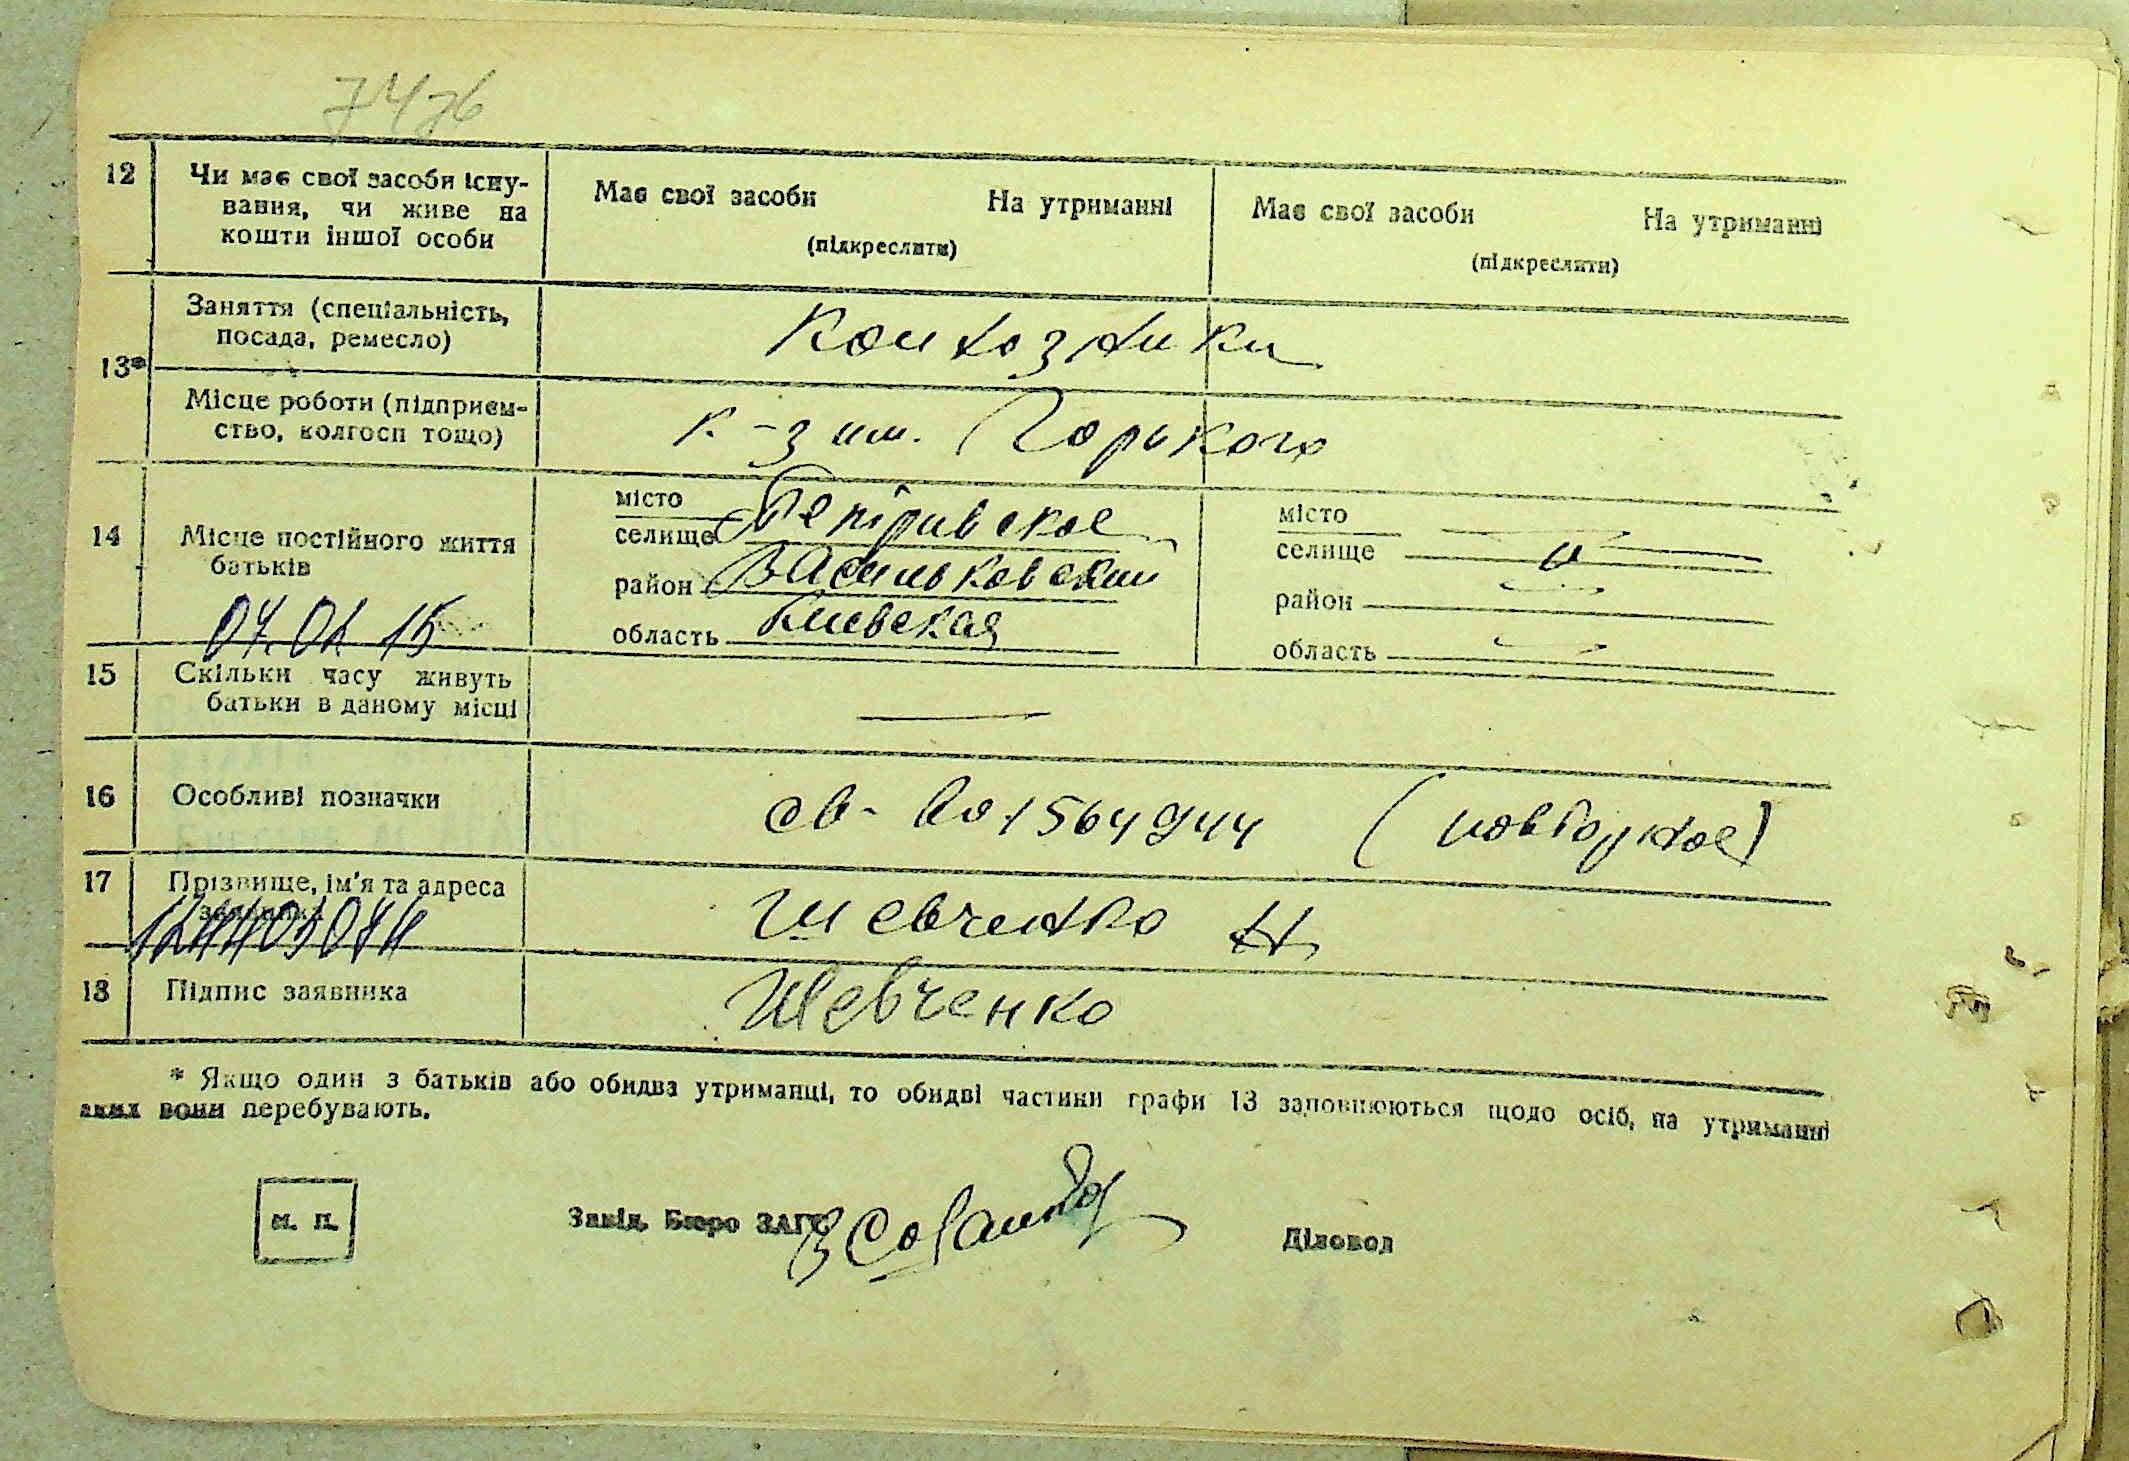 7476
12 Чи має свої засоби існу-
вання, чи живе на
кошти іншої особи
Має свої засоби На утриманні
(підкреслити)
Має свої засоби На утриманні
(підкреслити)
13*
Заняття (спеціальність,
посада, ремесло)
Колхозники
Місце роботи (підприєм-
ство, колгосп тощо)
к-з им. Горького
14 Місце постійного життя
батьків
07.01.15
місто
селище
район Васильковский
область Киевская
місто
селище
район
область
15 Скільки часу живуть
батьки в даному місці —
16 Особливі позначки
св-во 1564944 (повторное)
17 Прізвище, ім'я та адреса
заявника
Шевченко Н
18 Підпис заявника
Шевченко
* Якщо один з батьків або обидва утриманці, то обидві частини графи 13 заповнюються щодо осіб, на утриманні
яких вони перебувають.
м. п.
Завід. Бюро ЗАГС
Діловод